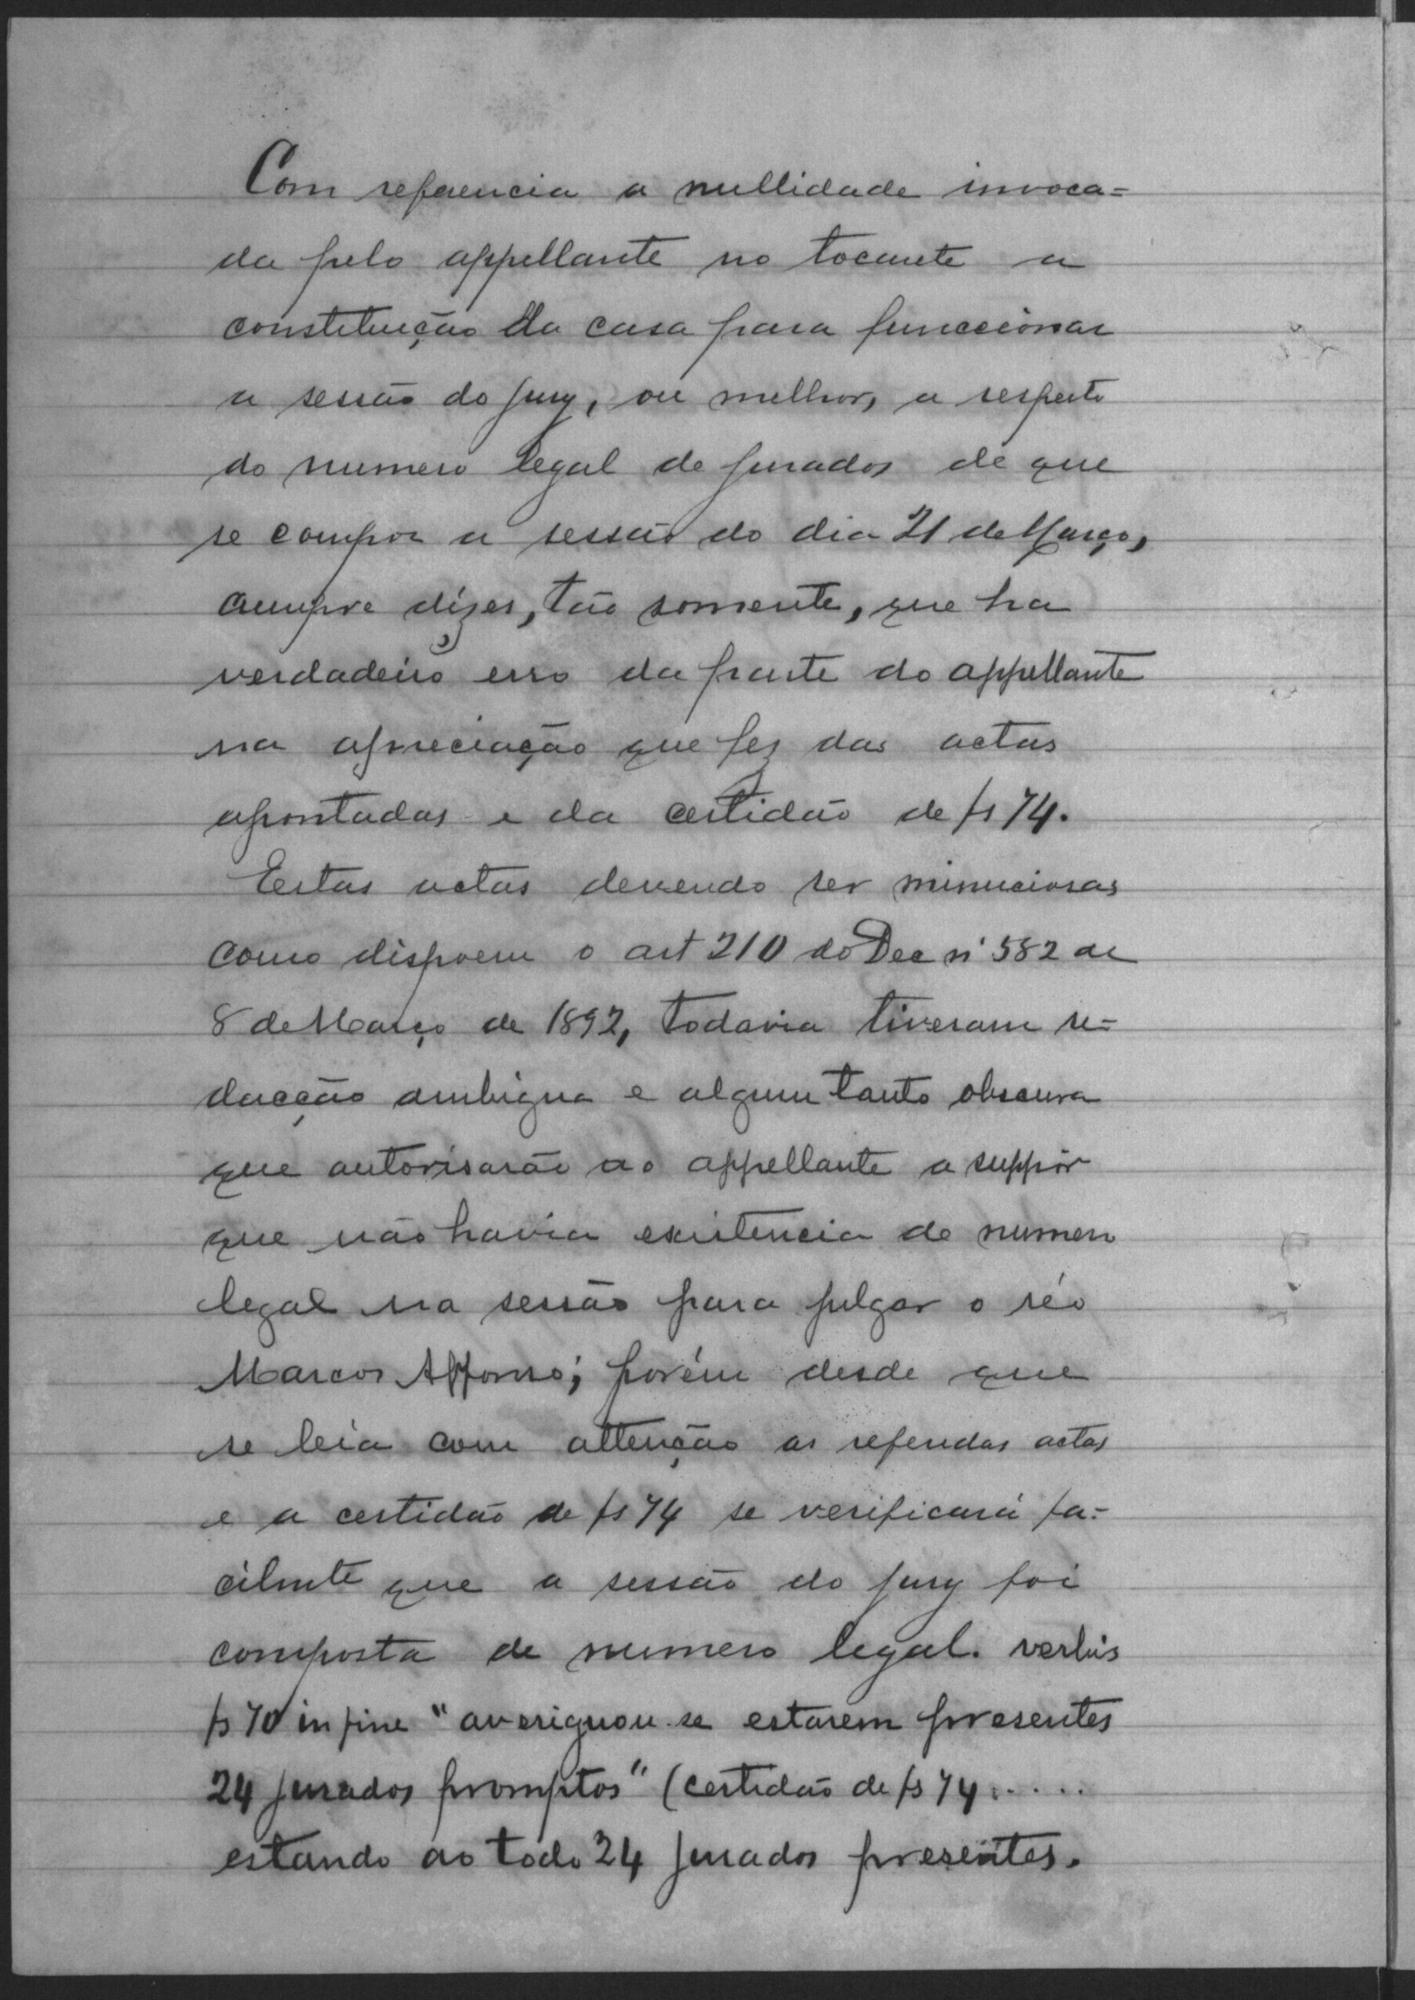 Com referencia a nullidade invoca=
da pelo appellante no tocante a
constituição da casa para funccionar
a sessão do jury, ou melhor, a respeito
do numero legal de jurados de que
se compoz a sessão do dia 21 de Março,
cumpre dizer, tão somente, que ha
verdadeiro erro da parte do appellante
na apreciação que fez das actas
apontadas e da certidão de fs 74.
Estas actas devendo ser minuciosas
como dispoem o art 210 do Dec nº 582 de
8 de Março de 1892, todavia tiveram re=
dacção ambigua e algum tanto obscura
que autorisarão ao appellante a suppôr
que não havia existencia de numero
legal na sessão para julgar o réo
Marcos Affonso; porém desde que
se leia com attenção as referidas actas
e a certidão de fs 74 se verificará fa=
cilmte que a sessão do jury foi
composta de numero legal. verbis
fs 70 in fine "averiguou-se estarem presentes
24 jurados promptos" (certidão de fs 74 . . . . .
estando ao todo 24 jurados presentes.